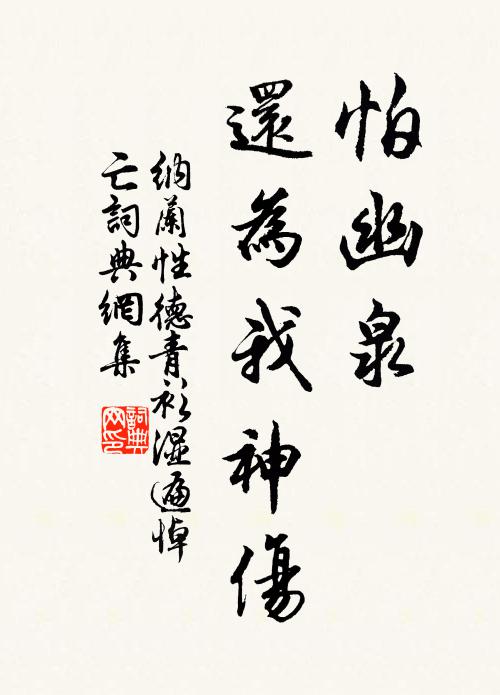 怕幽泉
還為我神傷
納蘭性德青衫濕遍悼
亡詞典網集
詞典
网印